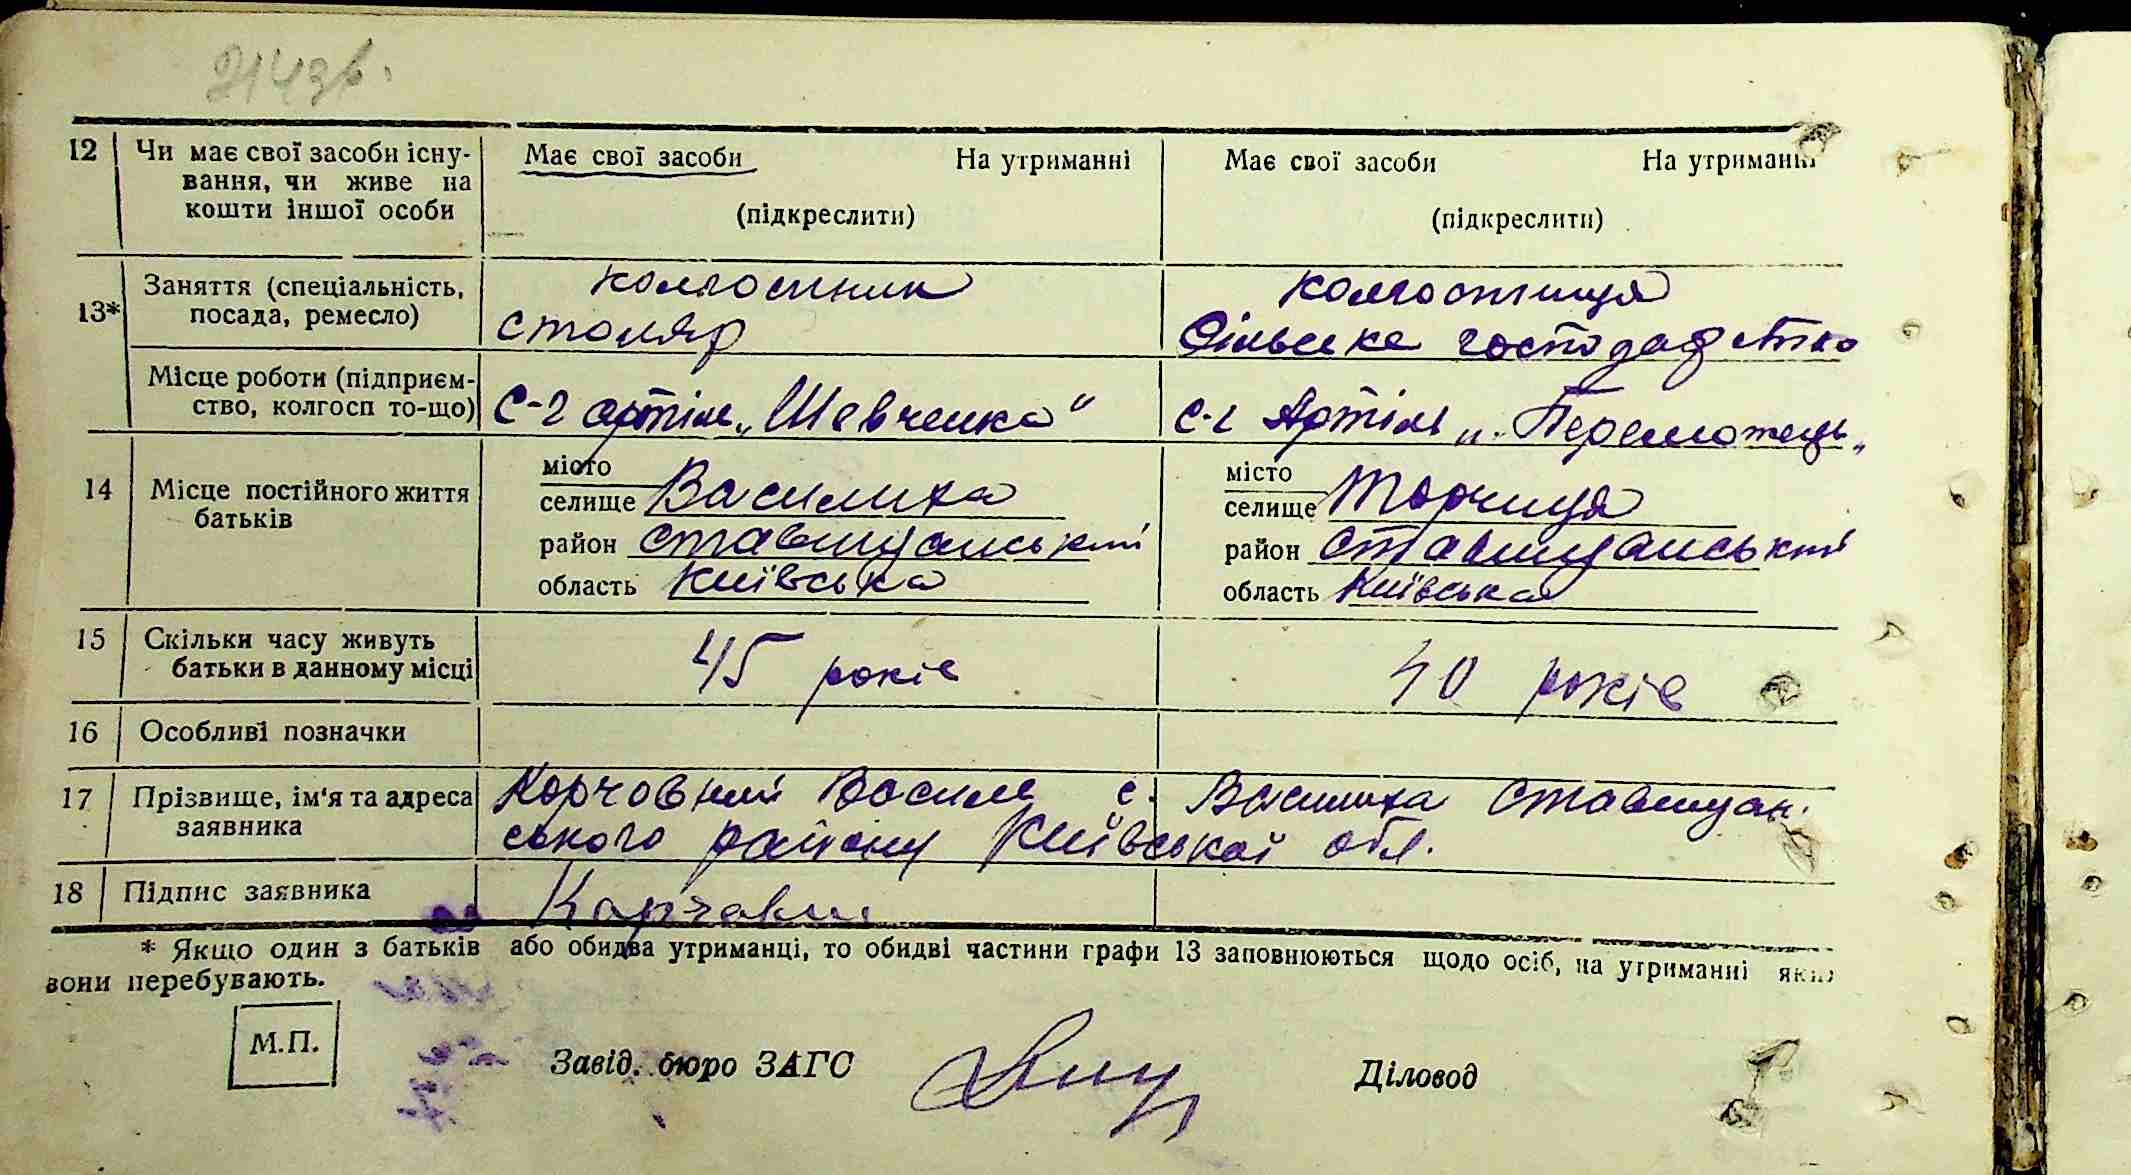 214зв.
12 Чи має свої засоби існу- Має свої засоби На утриманні Має свої засоби На утриманні
вання, чи живе на
кошти іншої особи (підкреслити) (підкреслити)
Заняття (спеціальність, колгоспник колгоспниця
13* посада, ремесло) столяр Сільське господарство
Місце роботи (підприєм-
ство, колгосп то-що) С-г артіль „Шевченка" С-г Артіль „Переможець„
місто місто
14 Місце постійного життя селище Василиха селище Торчиця
батьків район Ставищанський район Ставищанський
область Київська область Київська
15 Скільки часу живуть 45 років 40 років
батьки в данному місці
16 Особливі позначки
17 Прізвище, ім'я та адреса Корчовний Василь с. Василиха Ставищан.
заявника ського району Київської обл.
18 Підпис заявника Корчовни
* Якщо один з батьків або обидва утриманці, то обидві частини графи 13 заповнюються щодо осіб, на утриманні яких
вони перебувають.
М.П. Завід. бюро ЗАГС Діловод